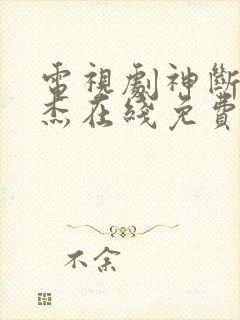 電視劇神斷
杰在綫免費
不余